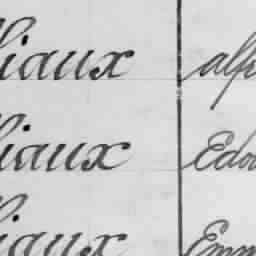 liaux alf
liaux Edou
liaux Emm